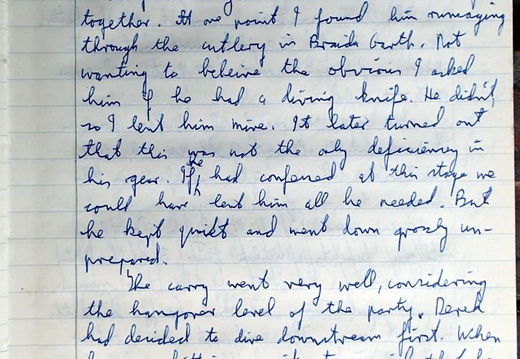 together. At one point I found him rumaging
through the cutlery in Braida Garth. Not
wanting to beleive the obvious I asked
him if he had a diving knife. He didn't,
so I lent him mine. It later turned out
that this was not the only deficiency in
his gear. If he had confessed at this stage we
could have lent him all he needed. But
he kept quiet and went down grossly un-
prepared.
The carry went very well, considering
the hangover level of the party. Derek
had decided to dive downstream first. When